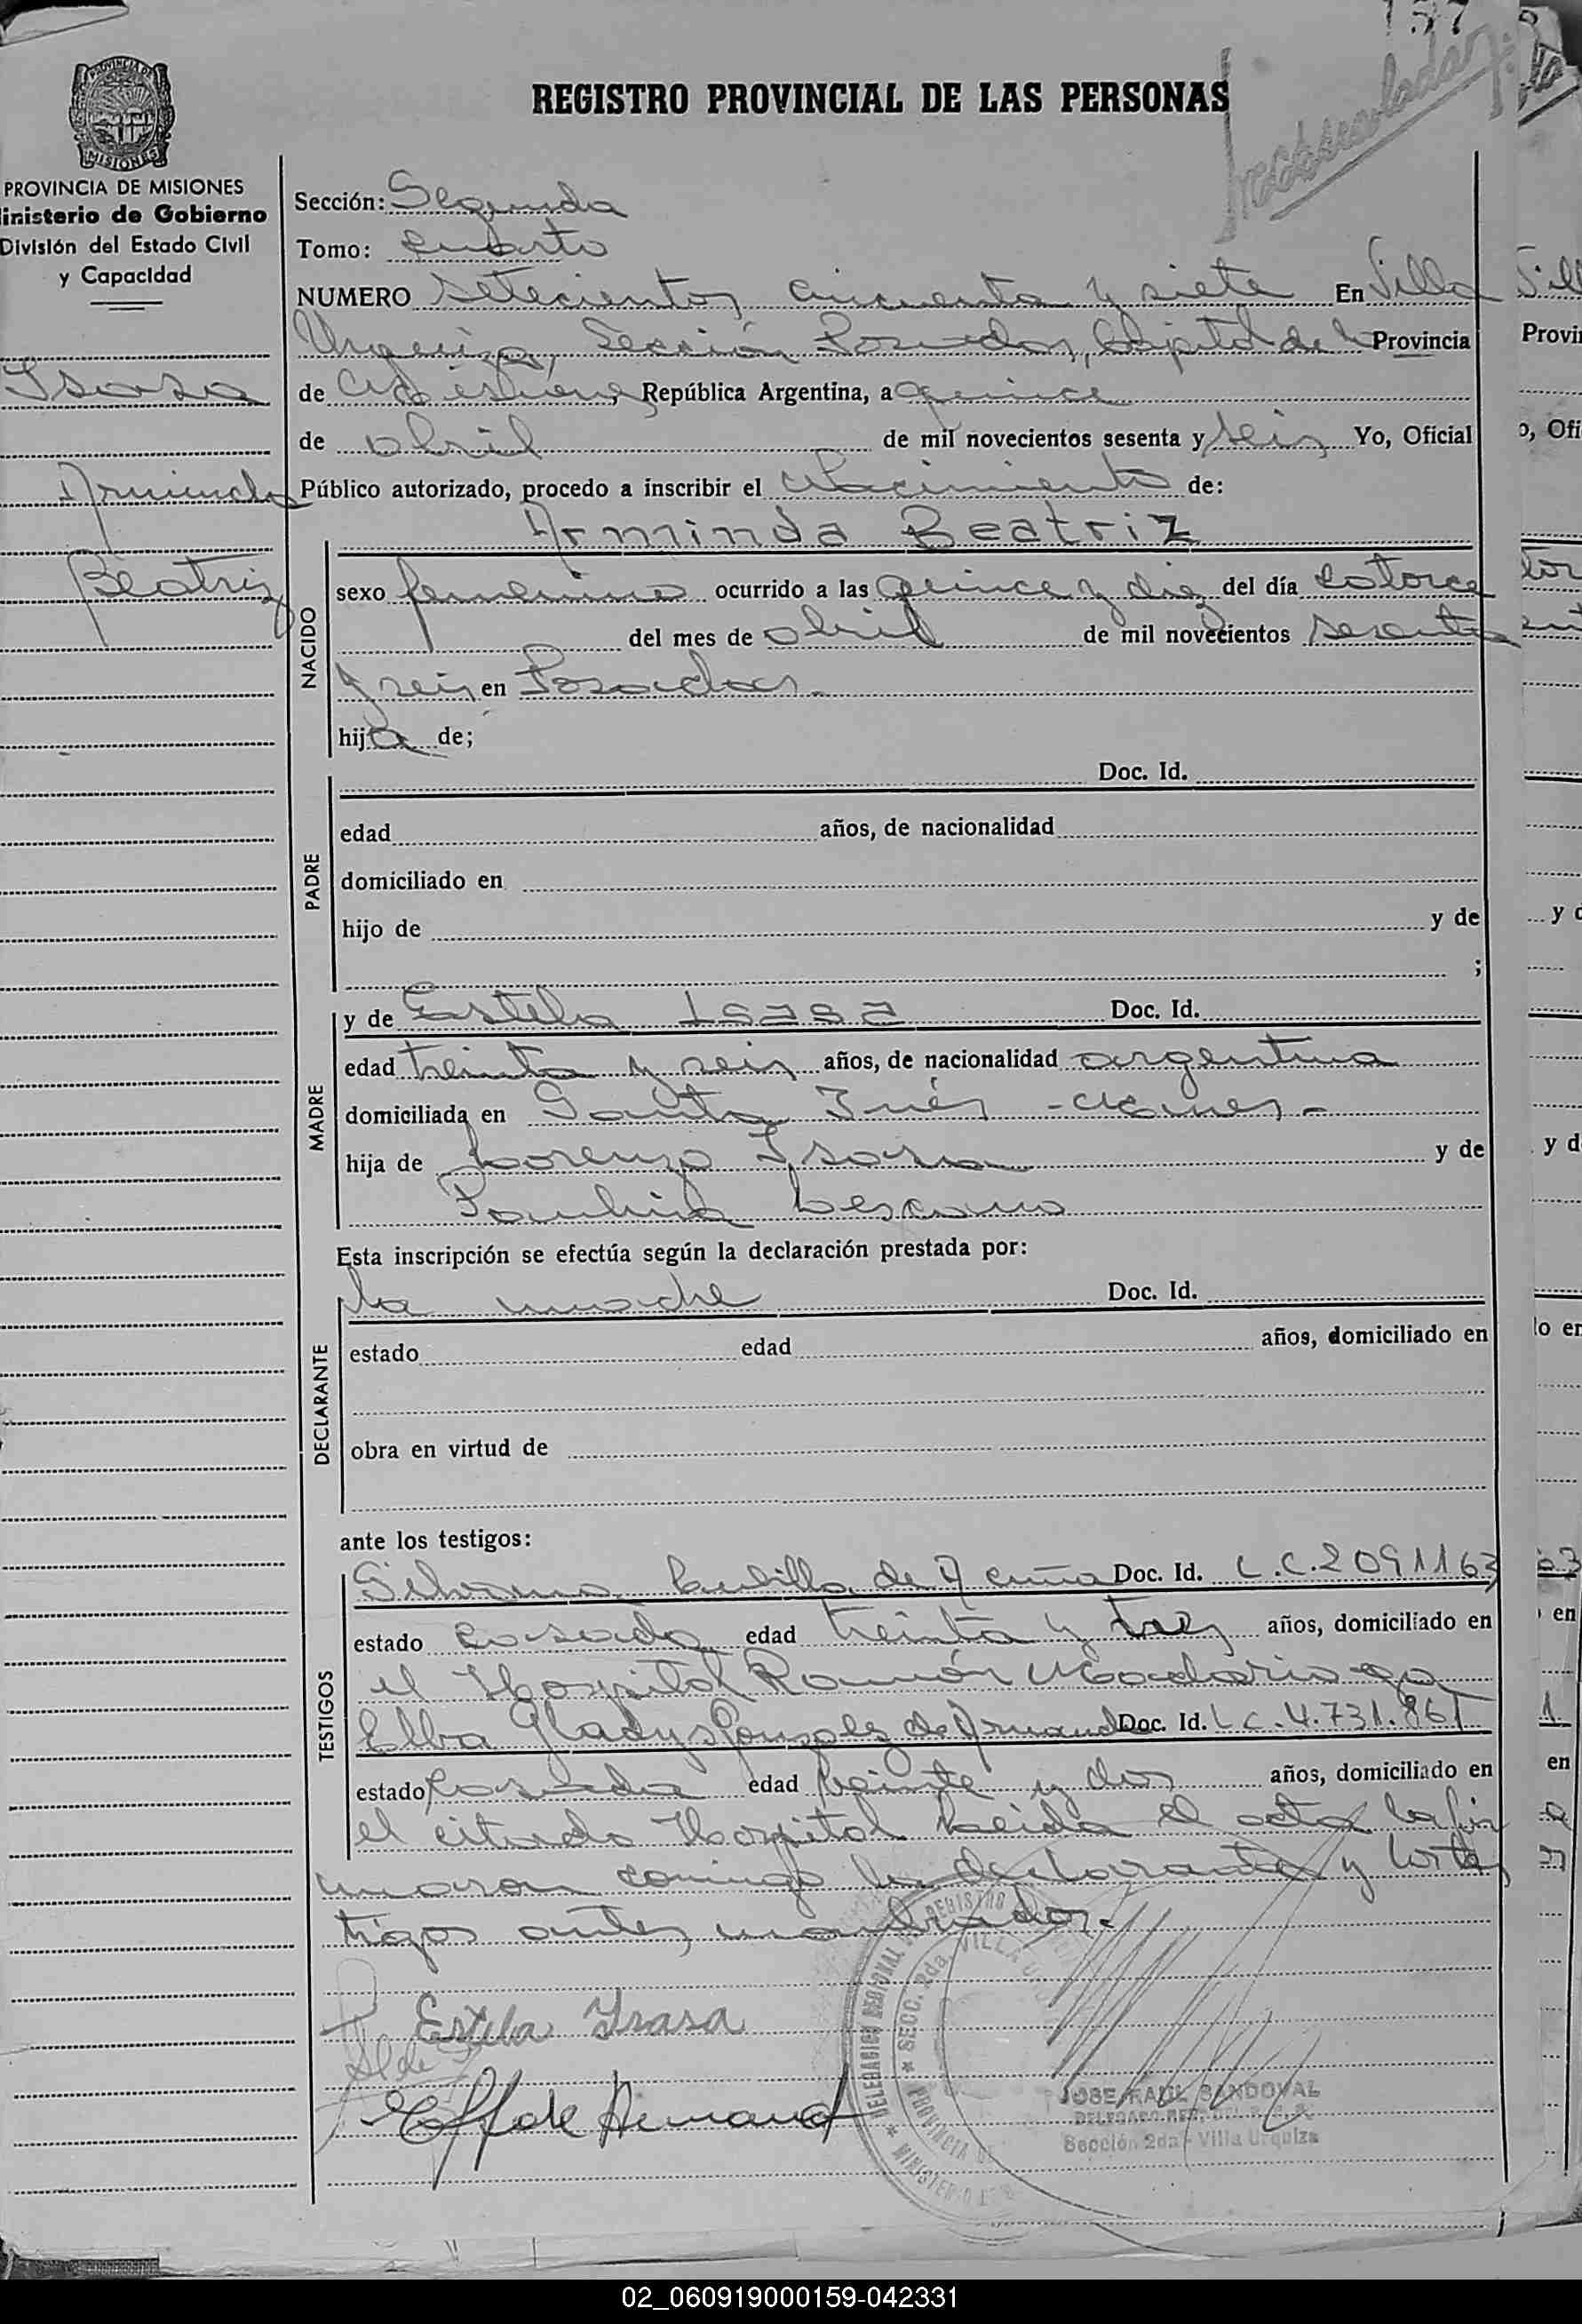 157
REGISTRO PROVINCIAL DE LAS PERSONAS
PROVINCIA DE MISIONES
PROVINCIA DE MISIONES
inisterio de Gobierno
División del Estado Civil
y Capacidad
Isasa
Arminda
Beatriz
Sección: Segunda
Tomo: cuarto
NUMERO setecientos cincuenta y siete En Villa
Urquiza, Sección Posadas, Capital de la Provincia
de Misiones, República Argentina, a quince
de abril de mil novecientos sesenta y seis Yo, Oficial
Público autorizado, procedo a inscribir el Nacimiento de:
Arminda Beatriz
NACIDO
sexo femenino ocurrido a las quince y diez del día catorce
del mes de abril de mil novecientos sesenta
y seis en Posadas.
hija de;
PADRE
Doc. Id.
edad años, de nacionalidad
domiciliado en
hijo de y de
;
MADRE
y de Estela Isasa Doc. Id.
edad treinta y seis años, de nacionalidad argentina
domiciliada en Santa Inés -
hija de Lorenzo Isasa y de
Paulina Lescano
Esta inscripción se efectúa según la declaración prestada por:
DECLARANTE
la madre Doc. Id.
estado edad años, domiciliado en
obra en virtud de
ante los testigos:
TESTIGOS
de Acuña Doc. Id. L.C. 2091163
estado casada edad treinta y tres años, domiciliado en
el Hospital Ramón Madariaga
Elba Gladys Gonzalez de Armando Doc. Id. L C. 4.731.861
estado casada edad veinte y dos años, domiciliado en
el citado Hospital Leida el acta la fir
maron conmigo la declarante y los tes
tigos antes nombrados.
Estela Isasa
DELEGACION REGIONAL REGISTRO
SECC. 2da. VILLA U
PROVINCIA DE
MINISTERIO
JOSE RAUL SANDOVAL
DELEGADO REG. DEL R. P. P.
Sección 2da - Villa Urquiza
02_060919000159-042331